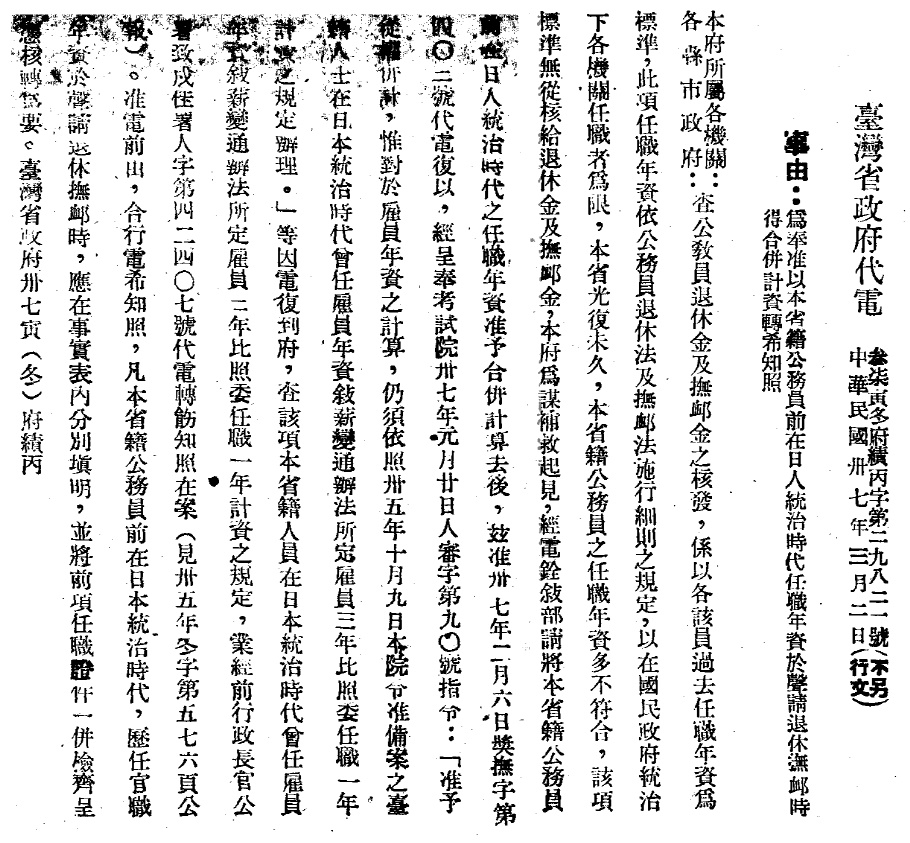 臺灣省政府代電
叁柒寅冬府績丙字第二九八二一號(不另行文)
中華民國卅七年三月二日
事由：爲奉准以本省籍公務員前在日人統治時代任職年資於聲請退休撫卹時
得合併計資轉希知照
本府所屬各機關：
各縣市政府：
查公教員退休金及撫卹金之核發，係以各該員過去任職年資爲
標準，此項任職年資依公務員退休法及撫卹法施行細則之規定，以在國民政府統治
下各機關任職者爲限，本省光復未久，本省籍公務員之任職年資多不符合，該項
標準無從核給退休金及撫卹金，本府爲謀補救起見，經電銓敍部請將本省籍公務員
前在日人統治時代之任職年資准予合併計算去後，茲准卅七年二月六日獎撫字第
四〇二號代電復以，經呈奉考試院卅七年元月廿日人審字第九〇號指令：「准予
從寬併計，惟對於雇員年資之計算，仍須依照卅五年十月九日本院令准備案之臺
籍人士在日本統治時代曾任雇員年資敍薪變通辦法所定雇員三年比照委任職一年
計資之規定辦理。」等因電復到府，查該項本省籍人員在日本統治時代曾任雇員
年資敍薪變通辦法所定雇員三年比照委任職一年計資之規定，業經前行政長官公
署致戌佳署人字第四二四〇七號代電轉飭知照在案（見卅五年冬字第五七六頁公
報）。准電前由，合行電希知照，凡本省籍公務員前在日本統治時代，歷任官職
年資於聲請退休撫卹時，應在事實表內分別填明，並將前項任職證件一併檢齊呈
憑核轉爲要。臺灣省政府卅七寅（冬）府績丙